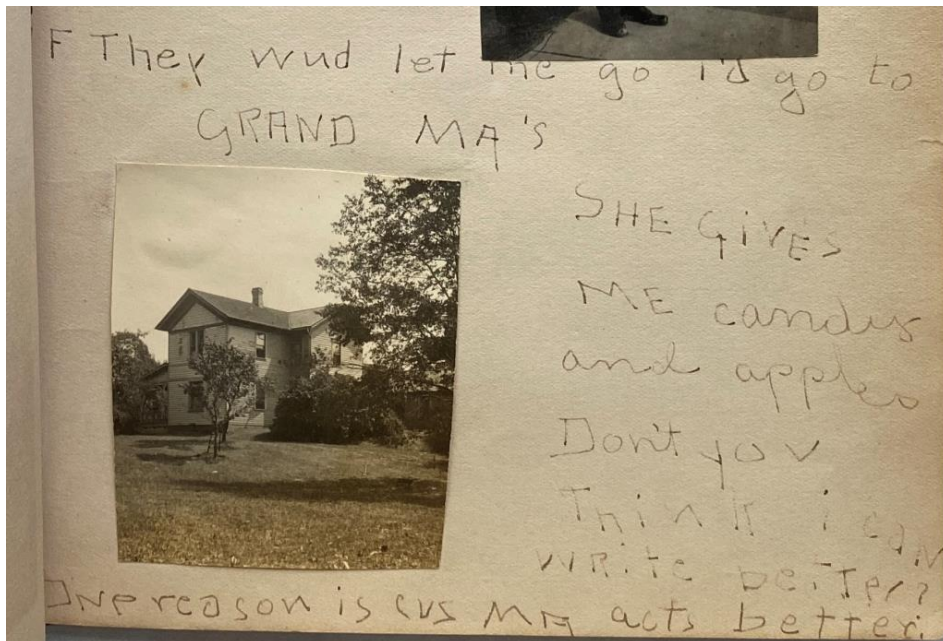 F They wud let me go i'd go to
GRAND MA'S
SHE GiVES
ME candys
and apples
Don't you
Think i can
write better?
One reason is cus MA acts better.